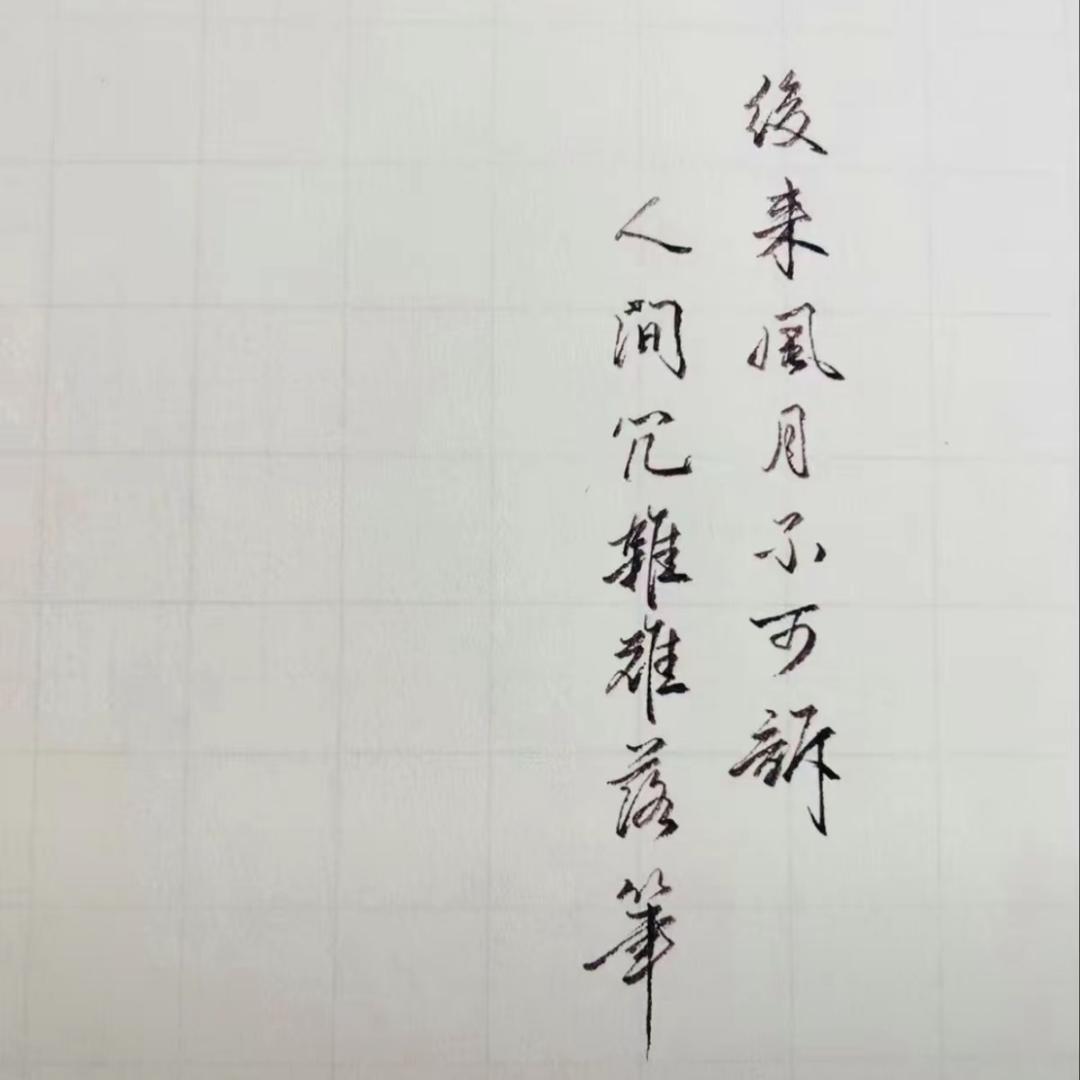 後来風月不可訴
人间冗雜難落筆